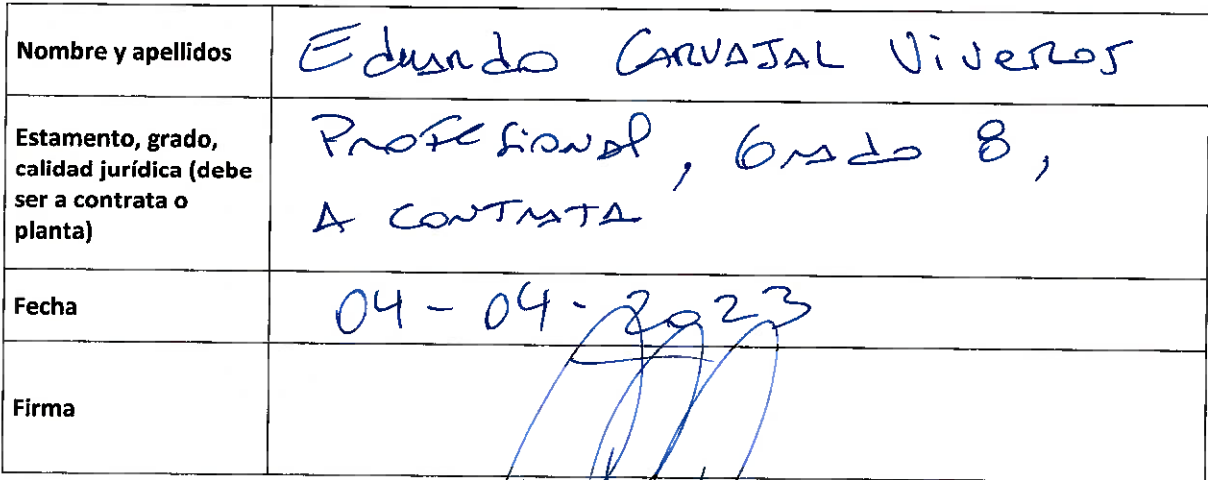 Nombre y apellidos
Eduardo CARVAJAL Viveros
Estamento, grado,
calidad jurídica (debe
ser a contrata o
planta)
Profesional, Grado 8,
A CONTRATA
Fecha
04-04-2023
Firma